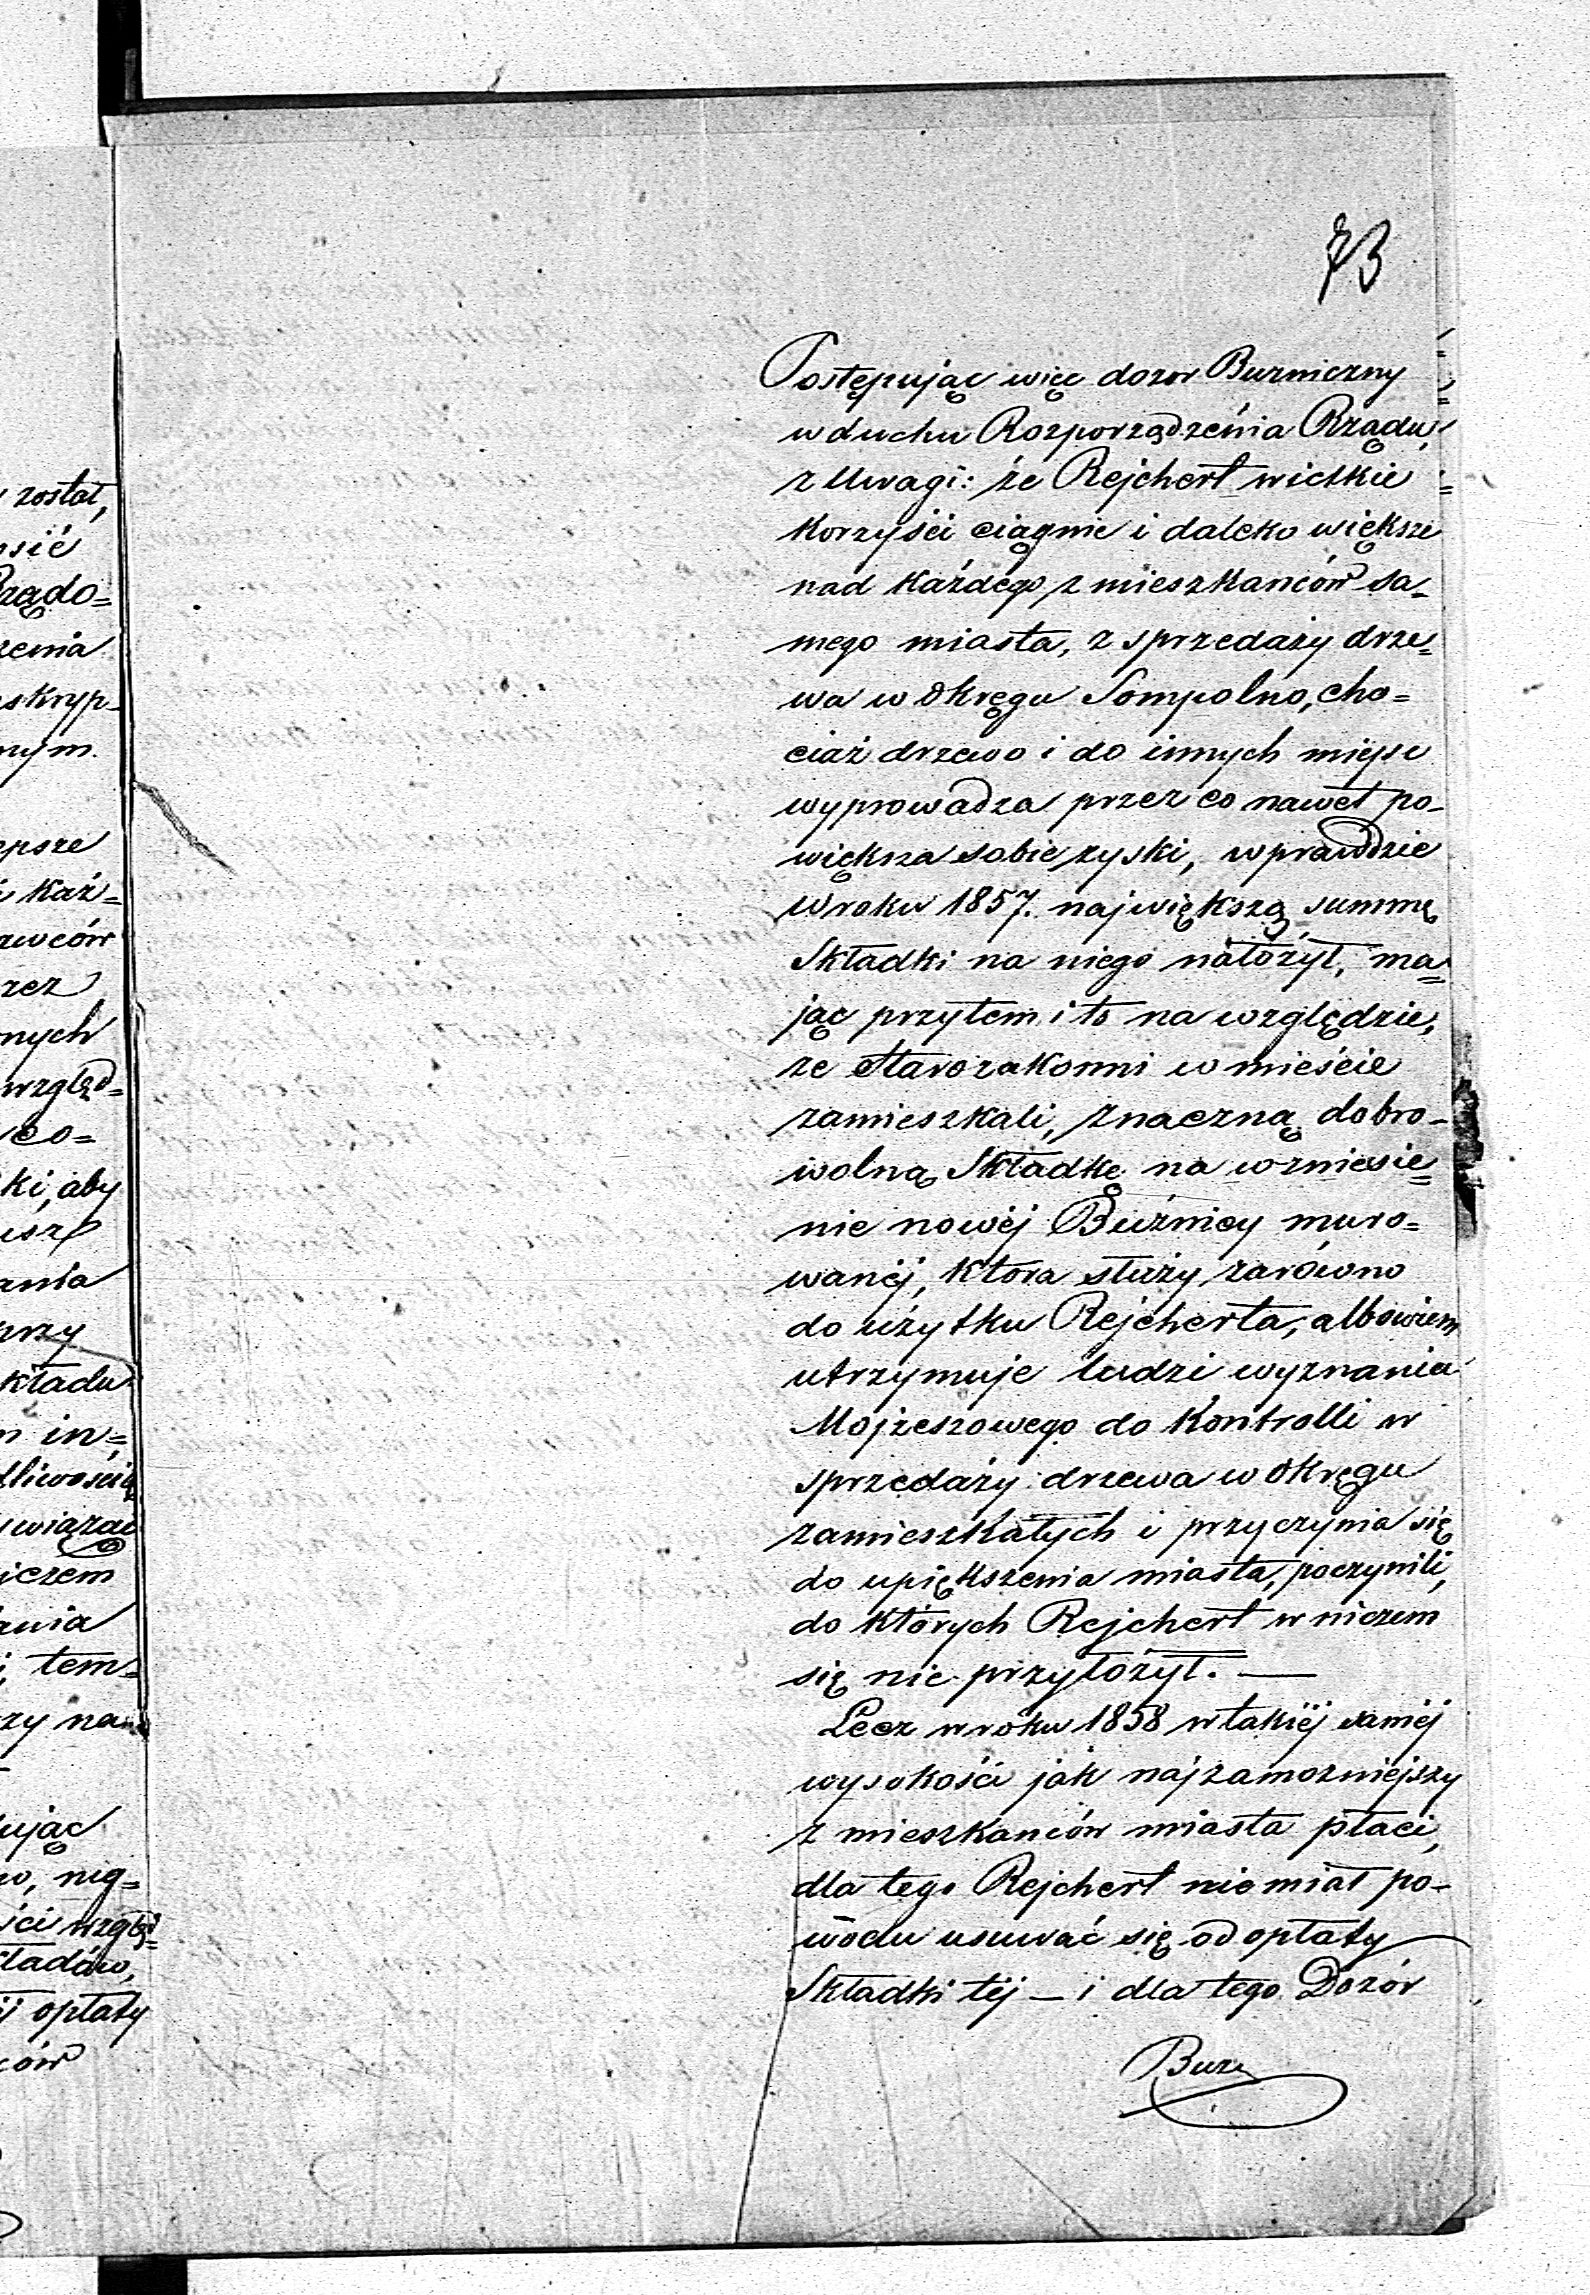 został,
Rządo=
skryp=
nym
każ=
względ=
co=
ki, aby
przy
kładu
in=
uwiązać
tem=
zy na
nig=
opłaty
73
Postępując więc dozor Buzniczny
w duchu Rozporządzenia Rządu,
z Uwagi: że Rejchert wielkie
korzyści ciągnie i daleko większe
nad każdego z mieszkanców sa-
mego miasta, z sprzedaży drze=
wa w Okręgu Sompolno, cho=
ciaż drzewo i do innych miejsc
wyprowadza przez co nawet po-
większa sobie zyski, wprawdzie
w roku 1857. największą summę
Składki na niego nałożył, ma=
jąc przytem i to na względzie,
ze Starozakonni w mieście
zamieszkali, znaczną dobro-
wolną Składkę na wzniesie=
nie nowéj Buźnicy muro=
wanéj, ktora służy zarówno
do użytku Rejcherta, albowiem
utrzymuje ludzi wyznania
Mojżeszowego do Kontrolli w
sprzedaży drzewa w Okręgu
zamieszkałych i przyczynia się
do upiększenia miasta, poczynili,
do których Rejchert w niczem
się nie przyłożył. —
Lecz w roku 1858 w takiéj saméj
wysokości jak najzamozniejszy
z mieszkanców miasta płaci,
dla tego Rejchert nie miał po-
wodu usuwać się od opłaty
Składki téj — i dla tego Dozór
Buzn